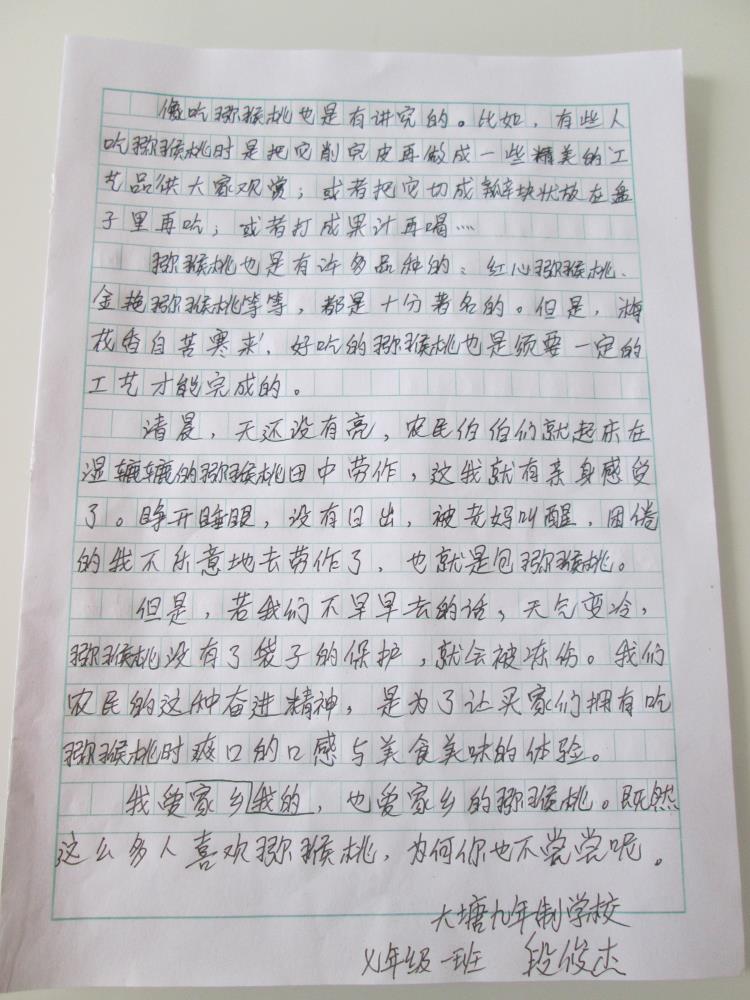 像吃猕猴桃也是有讲究的。比如，有些人
吃猕猴桃时是把它削完皮再做成一些精美的工
艺品供大家观赏；或者把它切成瓣块状放在盘
子里再吃；或者打成果汁再喝……
猕猴桃也是有许多品种的：红心猕猴桃、
金艳猕猴桃等等，都是十分著名的。但是，梅
花香自苦寒来，好吃的猕猴桃也是须要一定的
工艺才能完成的。
清晨，天还没有亮，农民伯伯们就起床在
湿辘辘的猕猴桃田中劳作，这我就有亲身感受
了。睁开睡眼，没有日出，被老妈叫醒，困倦
的我不乐意地去劳作了，也就是包猕猴桃。
但是，若我们不早早去的话，天气变冷，
猕猴桃没有了袋子的保护，就会被冻伤。我们
农民的这种奋进精神，是为了让买家们拥有吃
猕猴桃时爽口的口感与美食美味的体验。
我爱家乡我的，也爱家乡的猕猴桃。既然
这么多人喜欢猕猴桃，为何你也不尝尝呢。
大塘九年制学校
七年级一班 段俊杰